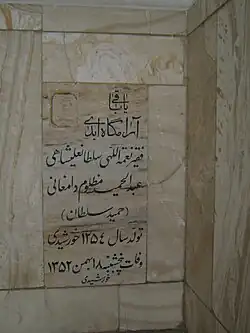 یا باقی
آرامگاه ابدی
فقیر نعمة اللهی سلطانعلیشاهی
عبدالحمید مظلوم دامغانی
(حمید سلطان)
تولد سال ۱۲۵۴ خورشیدی
وفات پنجشنبه ۱۸ بهمن ۱۳۵۲
خورشیدی